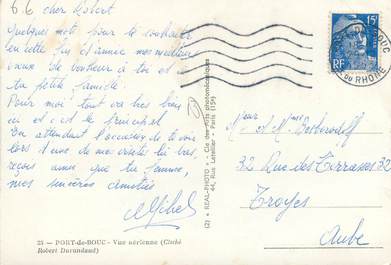 cher Robert
Quelques mots pour te souhaiter
en cette fin d'année mes meilleurs
vœux de bonheur à toi et à
ta petite famille.
Pour moi tout va très bien,
et c'est le principal.
En attendant l'occasion de te voir
lors d'une de mes visites
reçois ainsi que ta femme,
mes sincères amitiés
Michel
25 — PORT-de-BOUC - Vue aérienne (Cliché
Robert Durandaud)
(2) « REAL-PHOTO » - Cie des Arts photomécaniques
44, Rue Letellier - Paris (15e)
15F
RF
BOUC
DU RHONE
Mr et Mme
32 Rue des Terrasses 32
Troyes
Aube